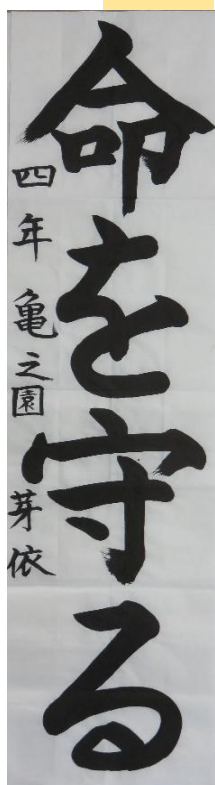 命を守る
四年 亀之園 芽依